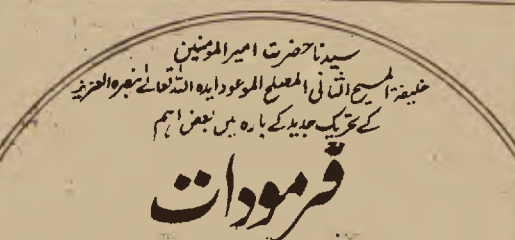 سیدنا حضرت امیر المومنین
خلیفۃ المسیح الثانی المصلح الموعود ایدہ اللہ تعالےٰ بنصرہ العزیز
کے تحریک جدید کے بارہ میں بعض اہم
فرمودات